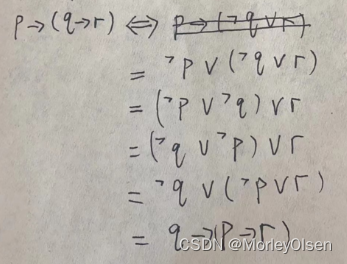 p→(q→r) ⇔ p→(¬q∨r)
= ¬p∨(¬q∨r)
= (¬p∨¬q)∨r
= (¬q∨¬p)∨r
= ¬q∨(¬p∨r)
= q→(p→r)
CSDN @MorleyOlsen